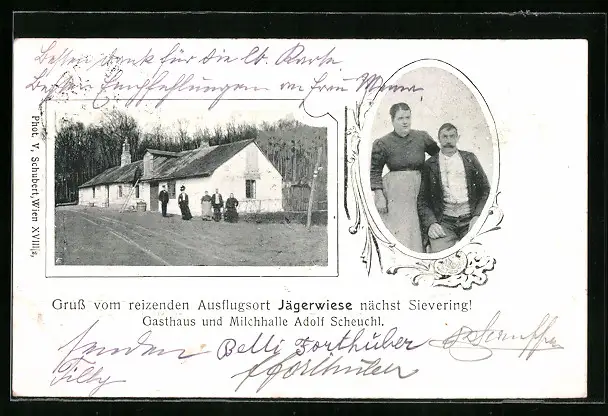 Besten Dank für die lb. Karte
Besten Empfehlungen an Frau Mama
Phot. V. Schubert, Wien XVIII/2
Gruß vom reizenden Ausflugsort Jägerwiese nächst Sievering!
Gasthaus und Milchhalle Adolf Scheuchl.
senden Betti Forthuber
Tilly Forthuber